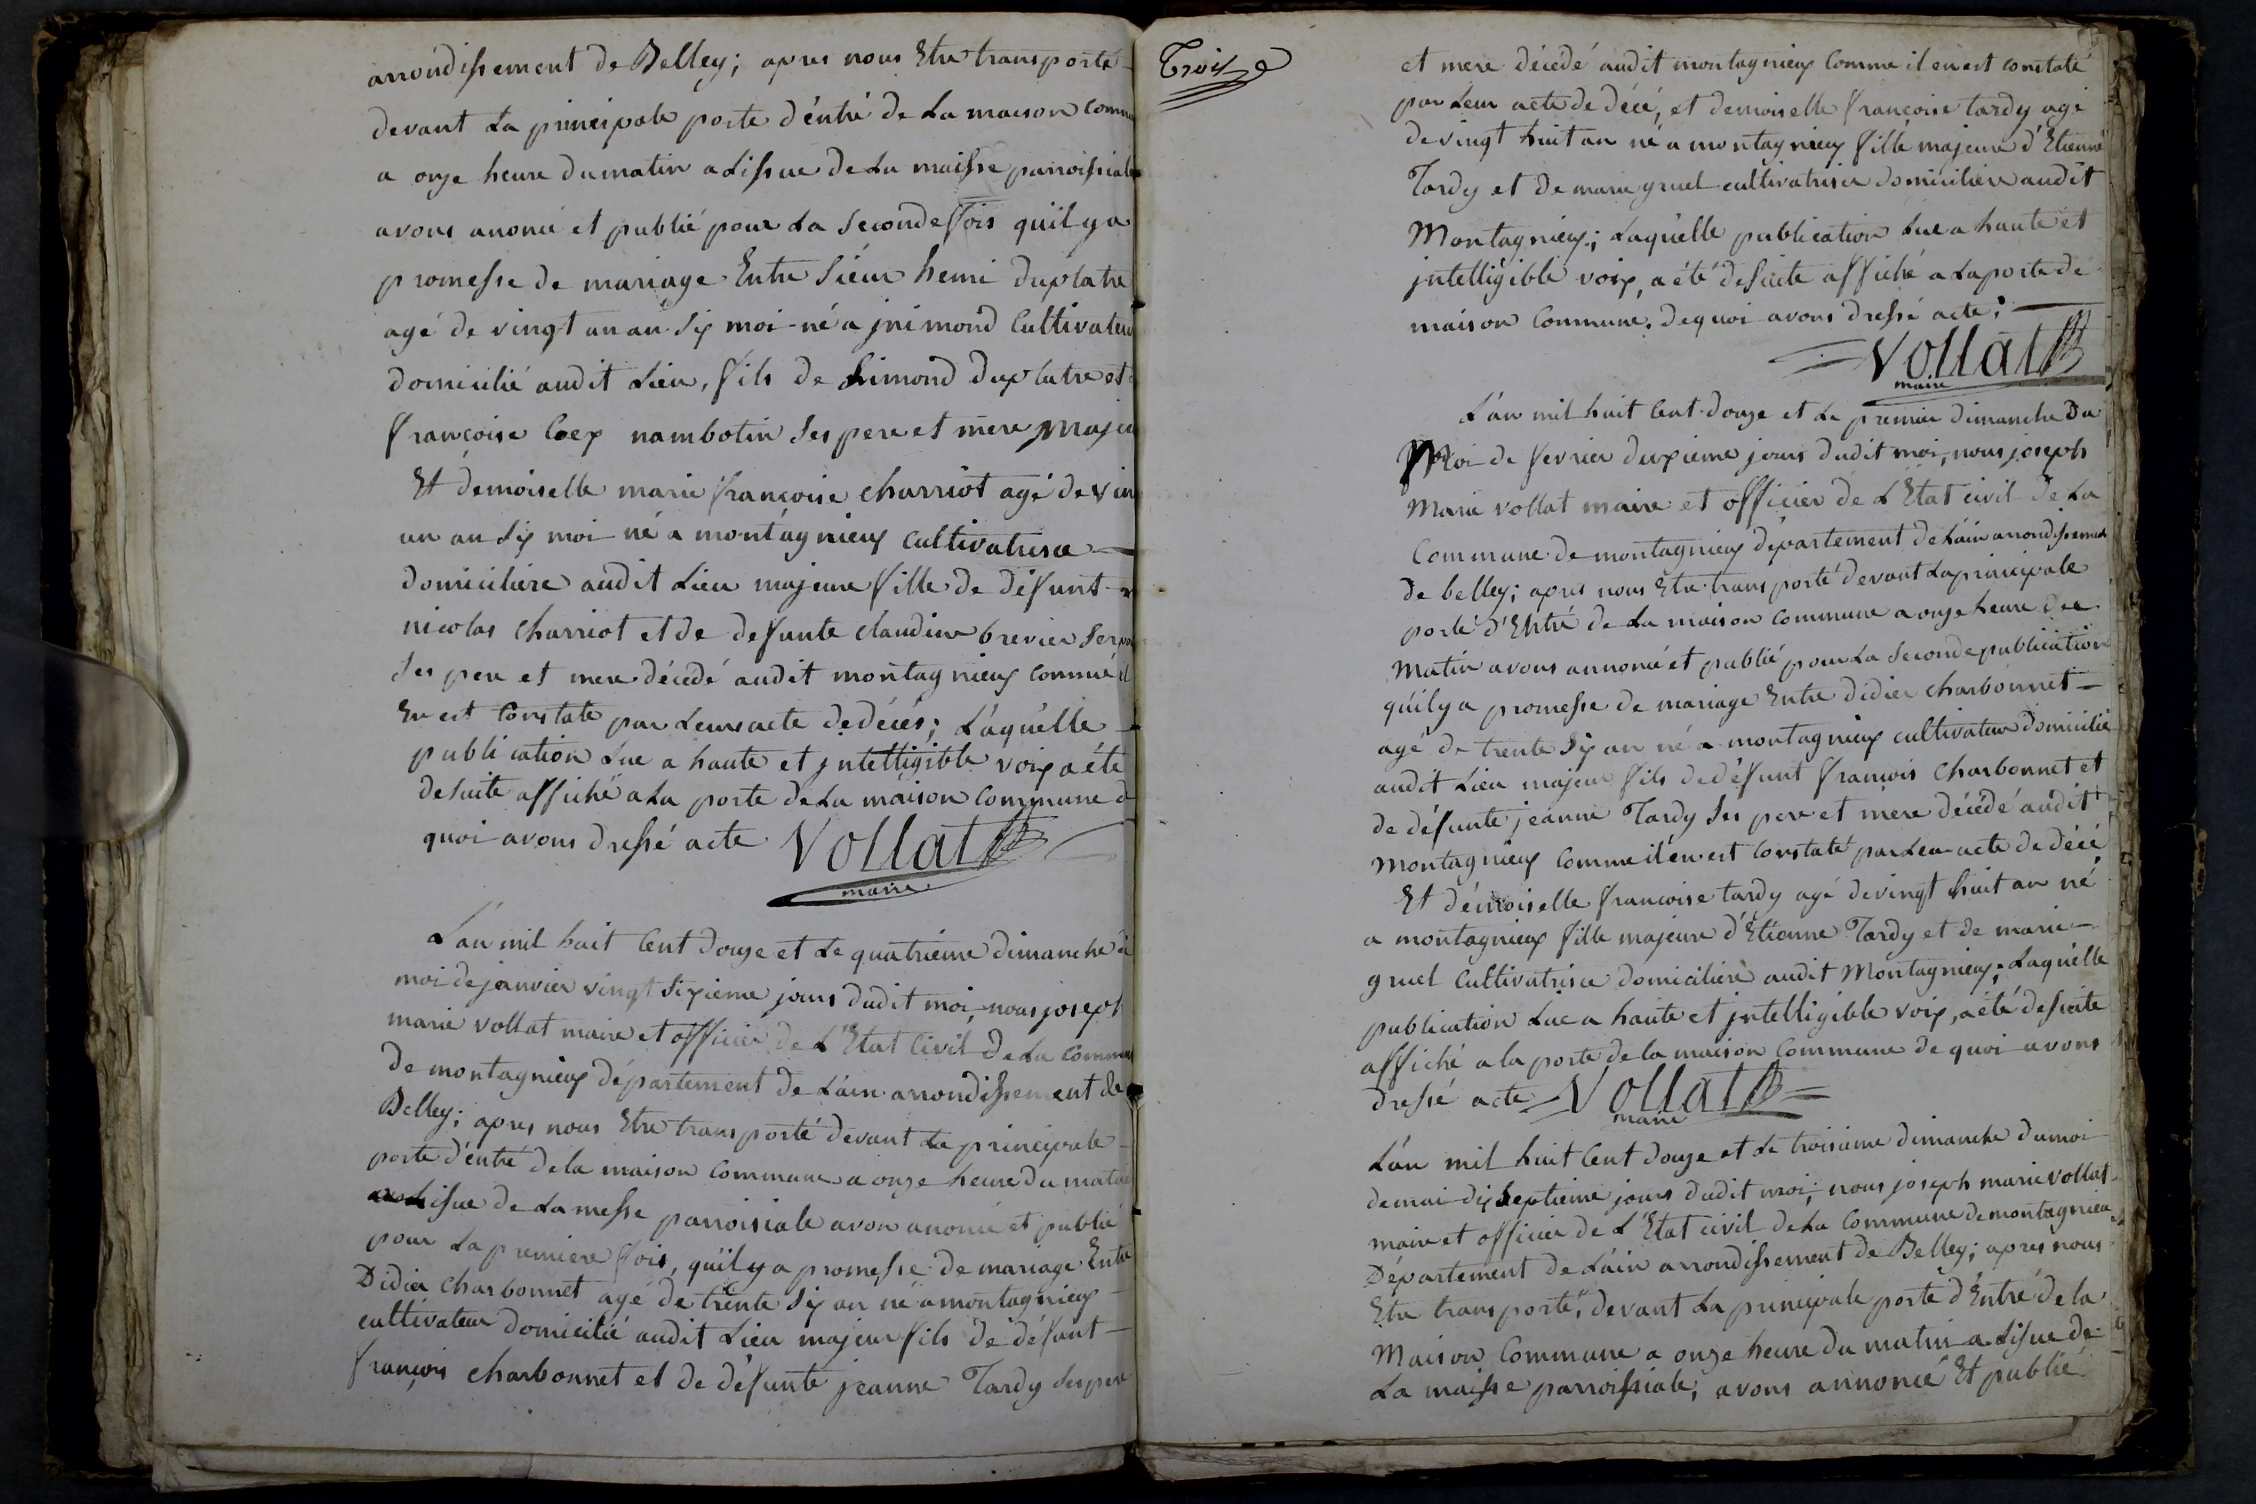 arrondissement de Belley; apres nous Etre transporté
devant La principale porte d'éntré de La maison comm
a onze heure du matin a Lissue de La maisse parroissiale
avons anoncé et publié pour La Seconde fois quil y a
promesse de mariage Entre Sieur henri duplatre
agé de vingt un an Six moi né a jnimond Cultivateur
domicilié audit Lieu, fils de Simond duplatre et
françoise Coex nambotin Ses pere et mere Majeu
Et démoiselle marie françoise charriot agé de vin
un an Six moi né a montagnieux Cultivatrice
domiciliére audit Lieu majeure fille de défunt
nicolas charriot et de defunte claudine brevier Ser
Ses pere et mere décédé audit montagnieux comme il
En est Constaté par Leurs acte de décés; Láquélle
publication Lue a haute et jntelligible voix a été
desuite affiché a La porte de La maison commune d
quoi avons dressé acte Vollat
maire
L'an mil huit Cent douze et Le quatriéme dimanche d
moi de janvier vingt Sixieme jours dudit moi, nous joseph
marie vollat maire et officier de L'Etat Civil de La Commu
De montagnieux département de L'ain arrondissement de
Belley; apres nous Etre transporté devant La principale
porte d'éntré de la maison Commune a onze heure du matin
Lissue de La messe parroisiale avon anoncé et publié
pour La premiere fois, qu'il y a promesse de mariage Entre
Didier Charbonnet agé de trente Six an né a montagnieux
cultivateur domicilié audit Lieu majeur fils de défunt
françois charbonnet et de défunte jeanne Tardy Ses pere
Trois
et mere décédé audit montagnieux Comme il en est constaté
par Leur acte de décé, et demoiselle françoise tardy agé
de vingt huit an né a montagnieux fille majeure d'Etienne
Tardy et de marie gruel cultivatrice domiciliére audit
Montagnieux; Laquélle publication Lue a haute et
jntelligible voix, a été desuite affiché a La porte de
maison Commune. de quoi avons dressé acte;
Vollat
maire
L'an mil huit Cent douze et Le premier dimanche Du
Moi de fevrier deuxieme jours dudit moi, nous joseph
Marie vollat maire et officier de L'Etat civil de La
Commune de montagnieux département de L'ain arrondissement
De belley; apres nous Etre transporté devant La principale
porte d'Entré de La maison Commune a onze heure du
Matin avons annoncé et publié pour La Seconde publication
quil y a promesse de mariage Entre didier charbonnet
agé de trente Six an né a montagnieux cultivateur domicilié
audit Lieu majeur fils de défunt françois Charbonnet et
de défunte jeanne Tardy Ses pere et mere décédé audit
Montagnieux Comme il en est Constaté par Leur acte de décé
Et démoiselle françoise tardy agé de vingt huit an né
a montagnieux fille majeure d'Etienne Tardy et de marie
gruel Cultivatrice domiciliére audit Montagnieux; Laquélle
publication Lue a haute et jntelligible voix, a été desuite
affiché a la porte de la maison Commune de quoi avons
dressé acte Vollat
maire
L'an mil huit Cent douze et Le troisieme dimanche du moi
de mai dix Septieme jours dudit moi; nous joseph marie vollat
maire et officier de L'Etat civil de La Commune de montagnieu
Département de L'ain arrondissement de Belley; apres nous
Etre transporté, devant La principale porte d'Entré de la
Maison Commune a onze heure du matin a Lisue de
La maisse parroissiale; avons annoncé Et publié